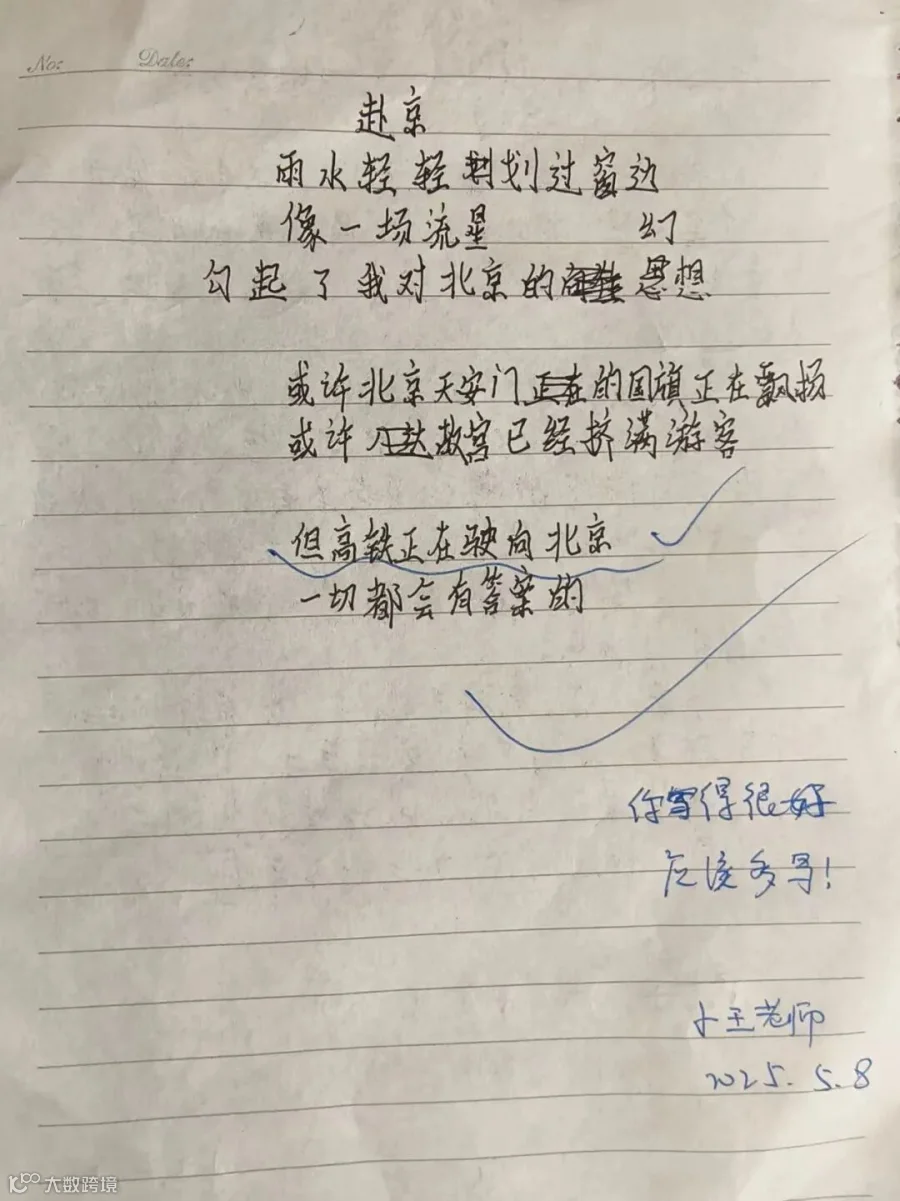 No: Date:
赴京
雨水轻轻划过窗边
像一场流星
幻
勾起了我对北京的思想
或许北京天安门的国旗正在飘扬
或许故宫已经挤满游客
但高铁正在驶向北京
一切都会有答案的
你写得很好
应该多写!
小王老师
2025.5.8
大数跨境